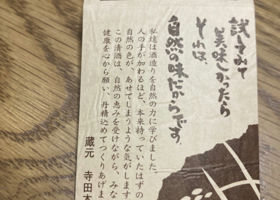 試してみて
美味しかったら
それは、
自然の味だからです。
私達は酒造りを自然の力に学びました。
人の手が加わるほど、本来持っていたはずの
自然の色が、あせてしまうような気がします
この清酒は、自然の恵みを受けながら、みな
健康を心から願い、丹精込めてつくりあげま
蔵元 寺田本